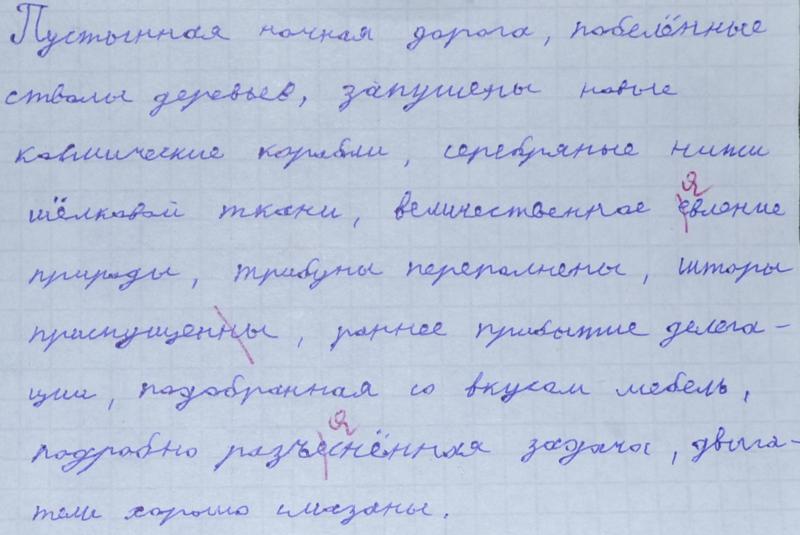 Пустынная ночная дорога, побелённые
стволы деревьев, запушены новые
космические корабли, серебряные нити
шёлковой ткани, величественное евление
природы, трибуны переполнены, шторы
приспущенны, раннее прибытие делега-
ции, подобранная со вкусом мебель,
подробно разъеснённая задача, двига-
тели хорошо смазаны.